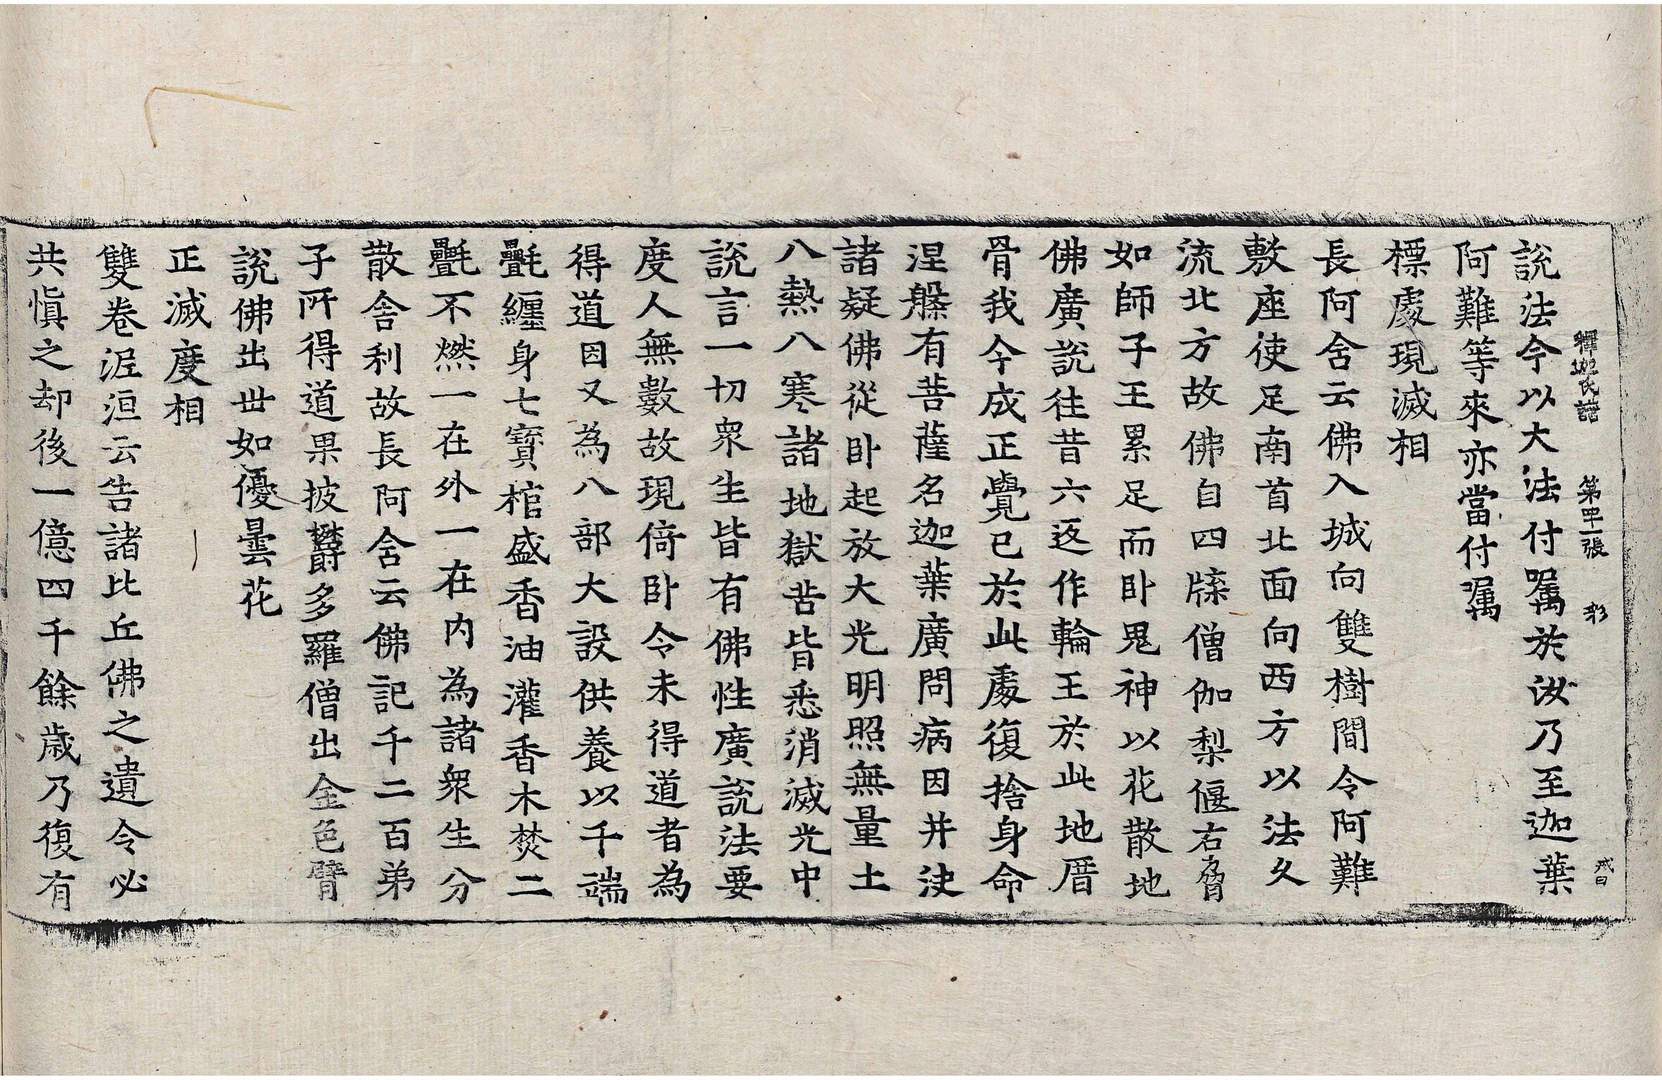 釋迦氏譜 第四二張 彩 戒日
說法今以大法付囑於汝乃至迦葉
阿難等來亦當付囑
標處現滅相
長阿舍云佛入城向雙樹間令阿難
敷座使足南首北面向西方以法久
流北方故佛自四牒僧伽梨偃右脅
如師子王累足而卧鬼神以花散地
佛廣說往昔六返作輪王於此地厝
骨我今成正覺已於此處復捨身命
涅槃有菩薩名迦葉廣問病因并决
諸疑佛從卧起放大光明照無量土
八熱八寒諸地獄苦皆悉消滅光中
說言一切衆生皆有佛性廣說法要
度人無數故現倚卧令未得道者為
得道因又為八部大設供養以千端
㲲纏身七寶棺盛香油灌香木焚二
㲲不燃一在外一在內為諸衆生分
散舍利故長阿含云佛記千二百弟
子所得道果披欝多羅僧出金色臂
說佛出世如優曇花
正滅度相
雙卷泥洹云告諸比丘佛之遺令必
共慎之却後一億四千餘歲乃復有